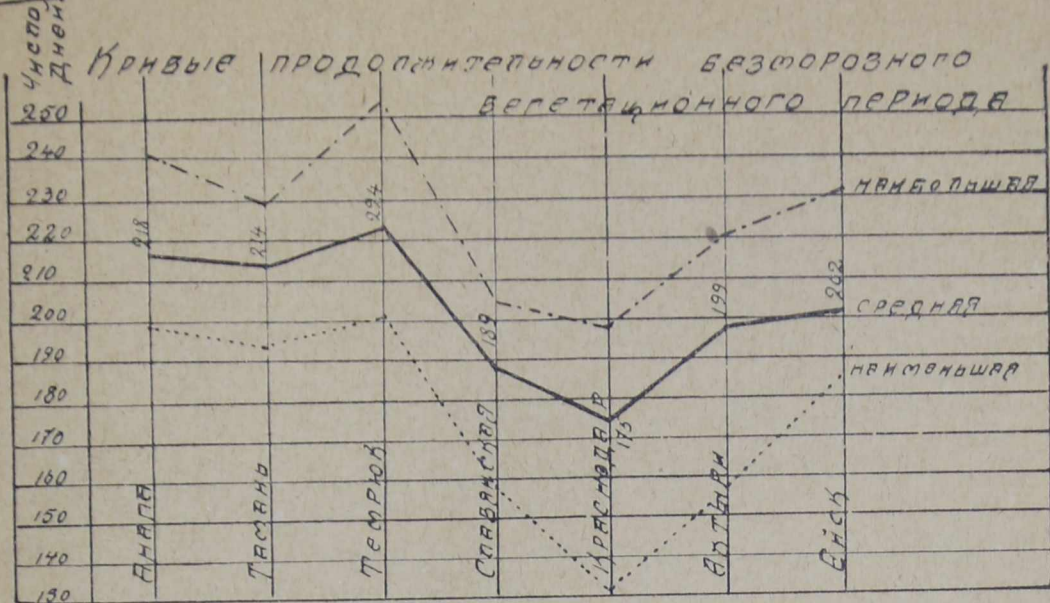 Число
дней
Кривые продолжительности безморозного
вегетационного периода
250
240
230
220
210
200
190
180
170
160
150
140
130
218
214
224
189
175
199
202
наибольшая
средная
наименьшая
Анапа
Тамань
Темрюк
Славянская
Краснодар
Ахтыри
Ейск